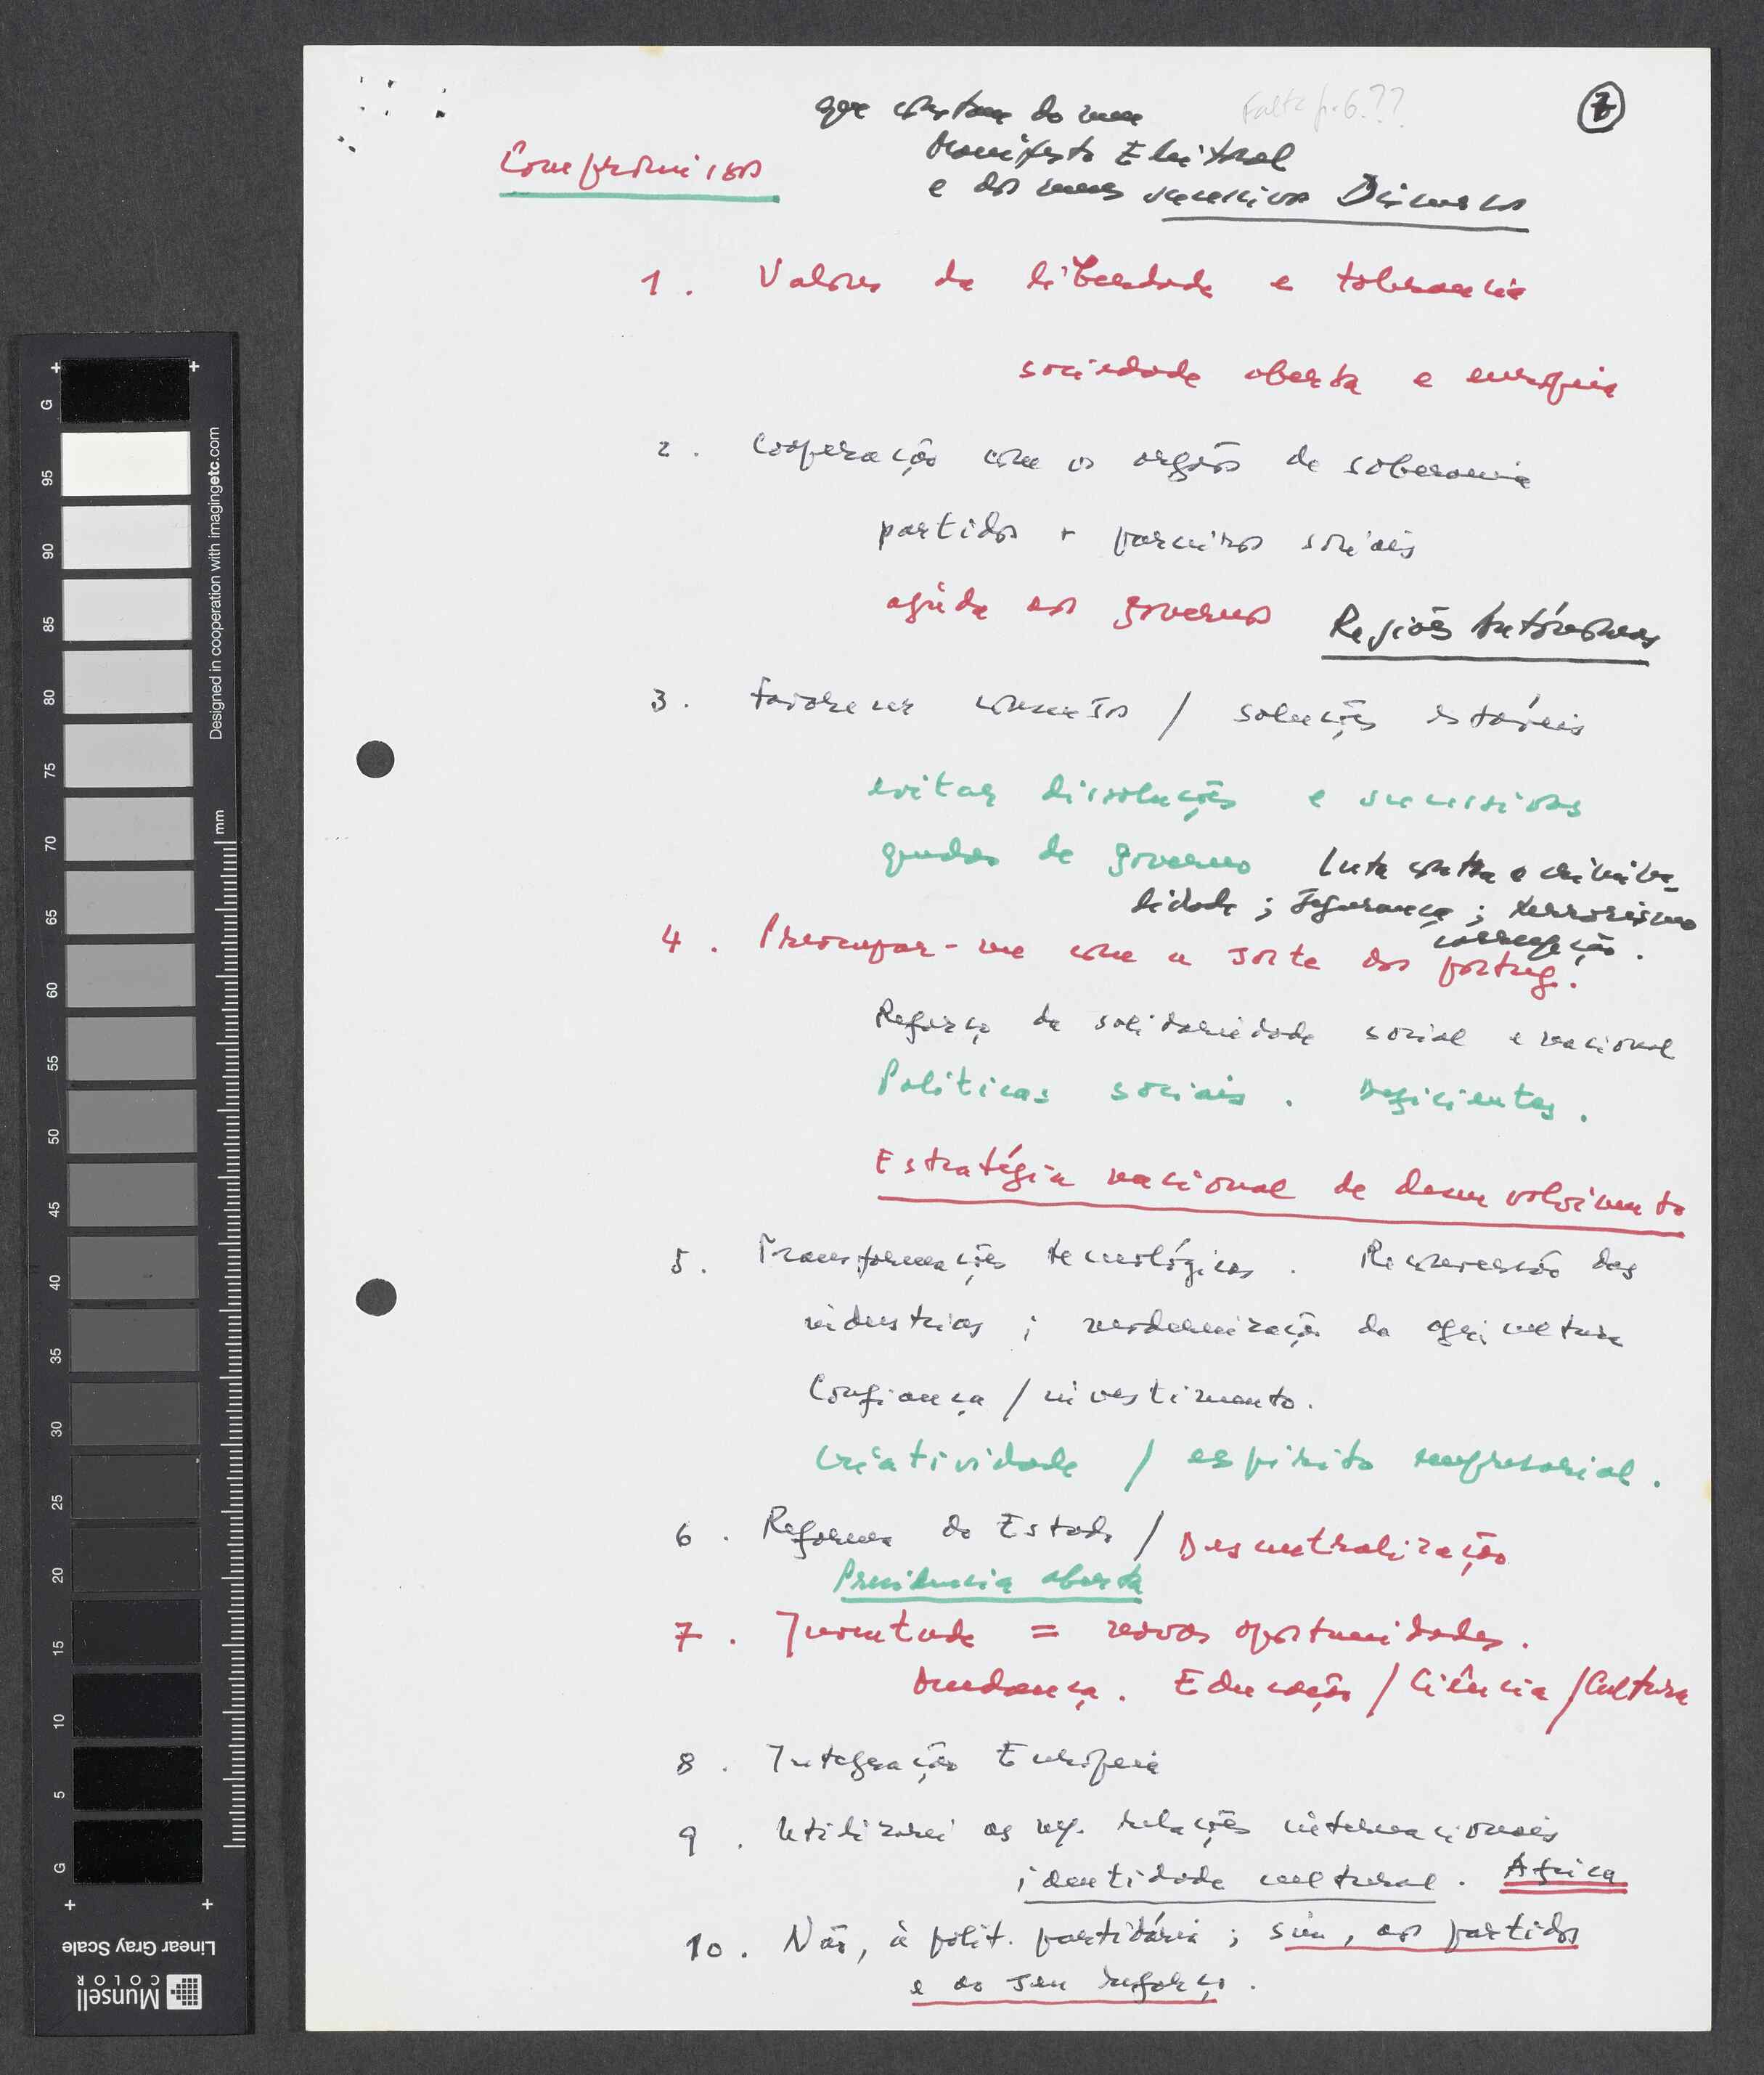 Falta p. 6??
7
que constam do meu
Manifesto Eleitoral
e dos meus sucessivos Discursos
Compromissos
1. Valores da liberdade e tolerancia
sociedade aberta e europeia
2. Cooperação com os orgãos de soberania
partidos + parceiros sociais
ajuda aos governos Regiões Autónomas
3. Favorecer consensos / soluções estáveis
evitar dissoluções e sucessivas
quedas de governo Luta contra a crimina-
lidade; Segurança; terrorismo
corrupção.
4. Preocupar-me com a sorte dos portug.
Reforço da solidariedade social e nacional
Políticas sociais. Deficientes.
Estratégia nacional de desenvolvimento
5. Transformações tecnológicas. Reconversão das
industrias; modernização da agricultura
Confiança / investimento.
Criatividade / espirito empresarial.
6. Reforma do Estado / Descentralização
Presidencia aberta
7. Juventude = novas oportunidades.
Mudança. Educação / Ciência / Cultura
8. Integração Europeia
9. Utilizarei as relações internacionais
identidade cultural. Africa
10. Não, à polit. partidária; sim, aos partidos
e ao seu reforço.
G 95 90 85 80 75 70 65 60 55 50 45 40 35 30 25 20 15 10 5 G
mm
Designed in cooperation with imagingetc.com
Linear Gray Scale
Munsell
COLOR